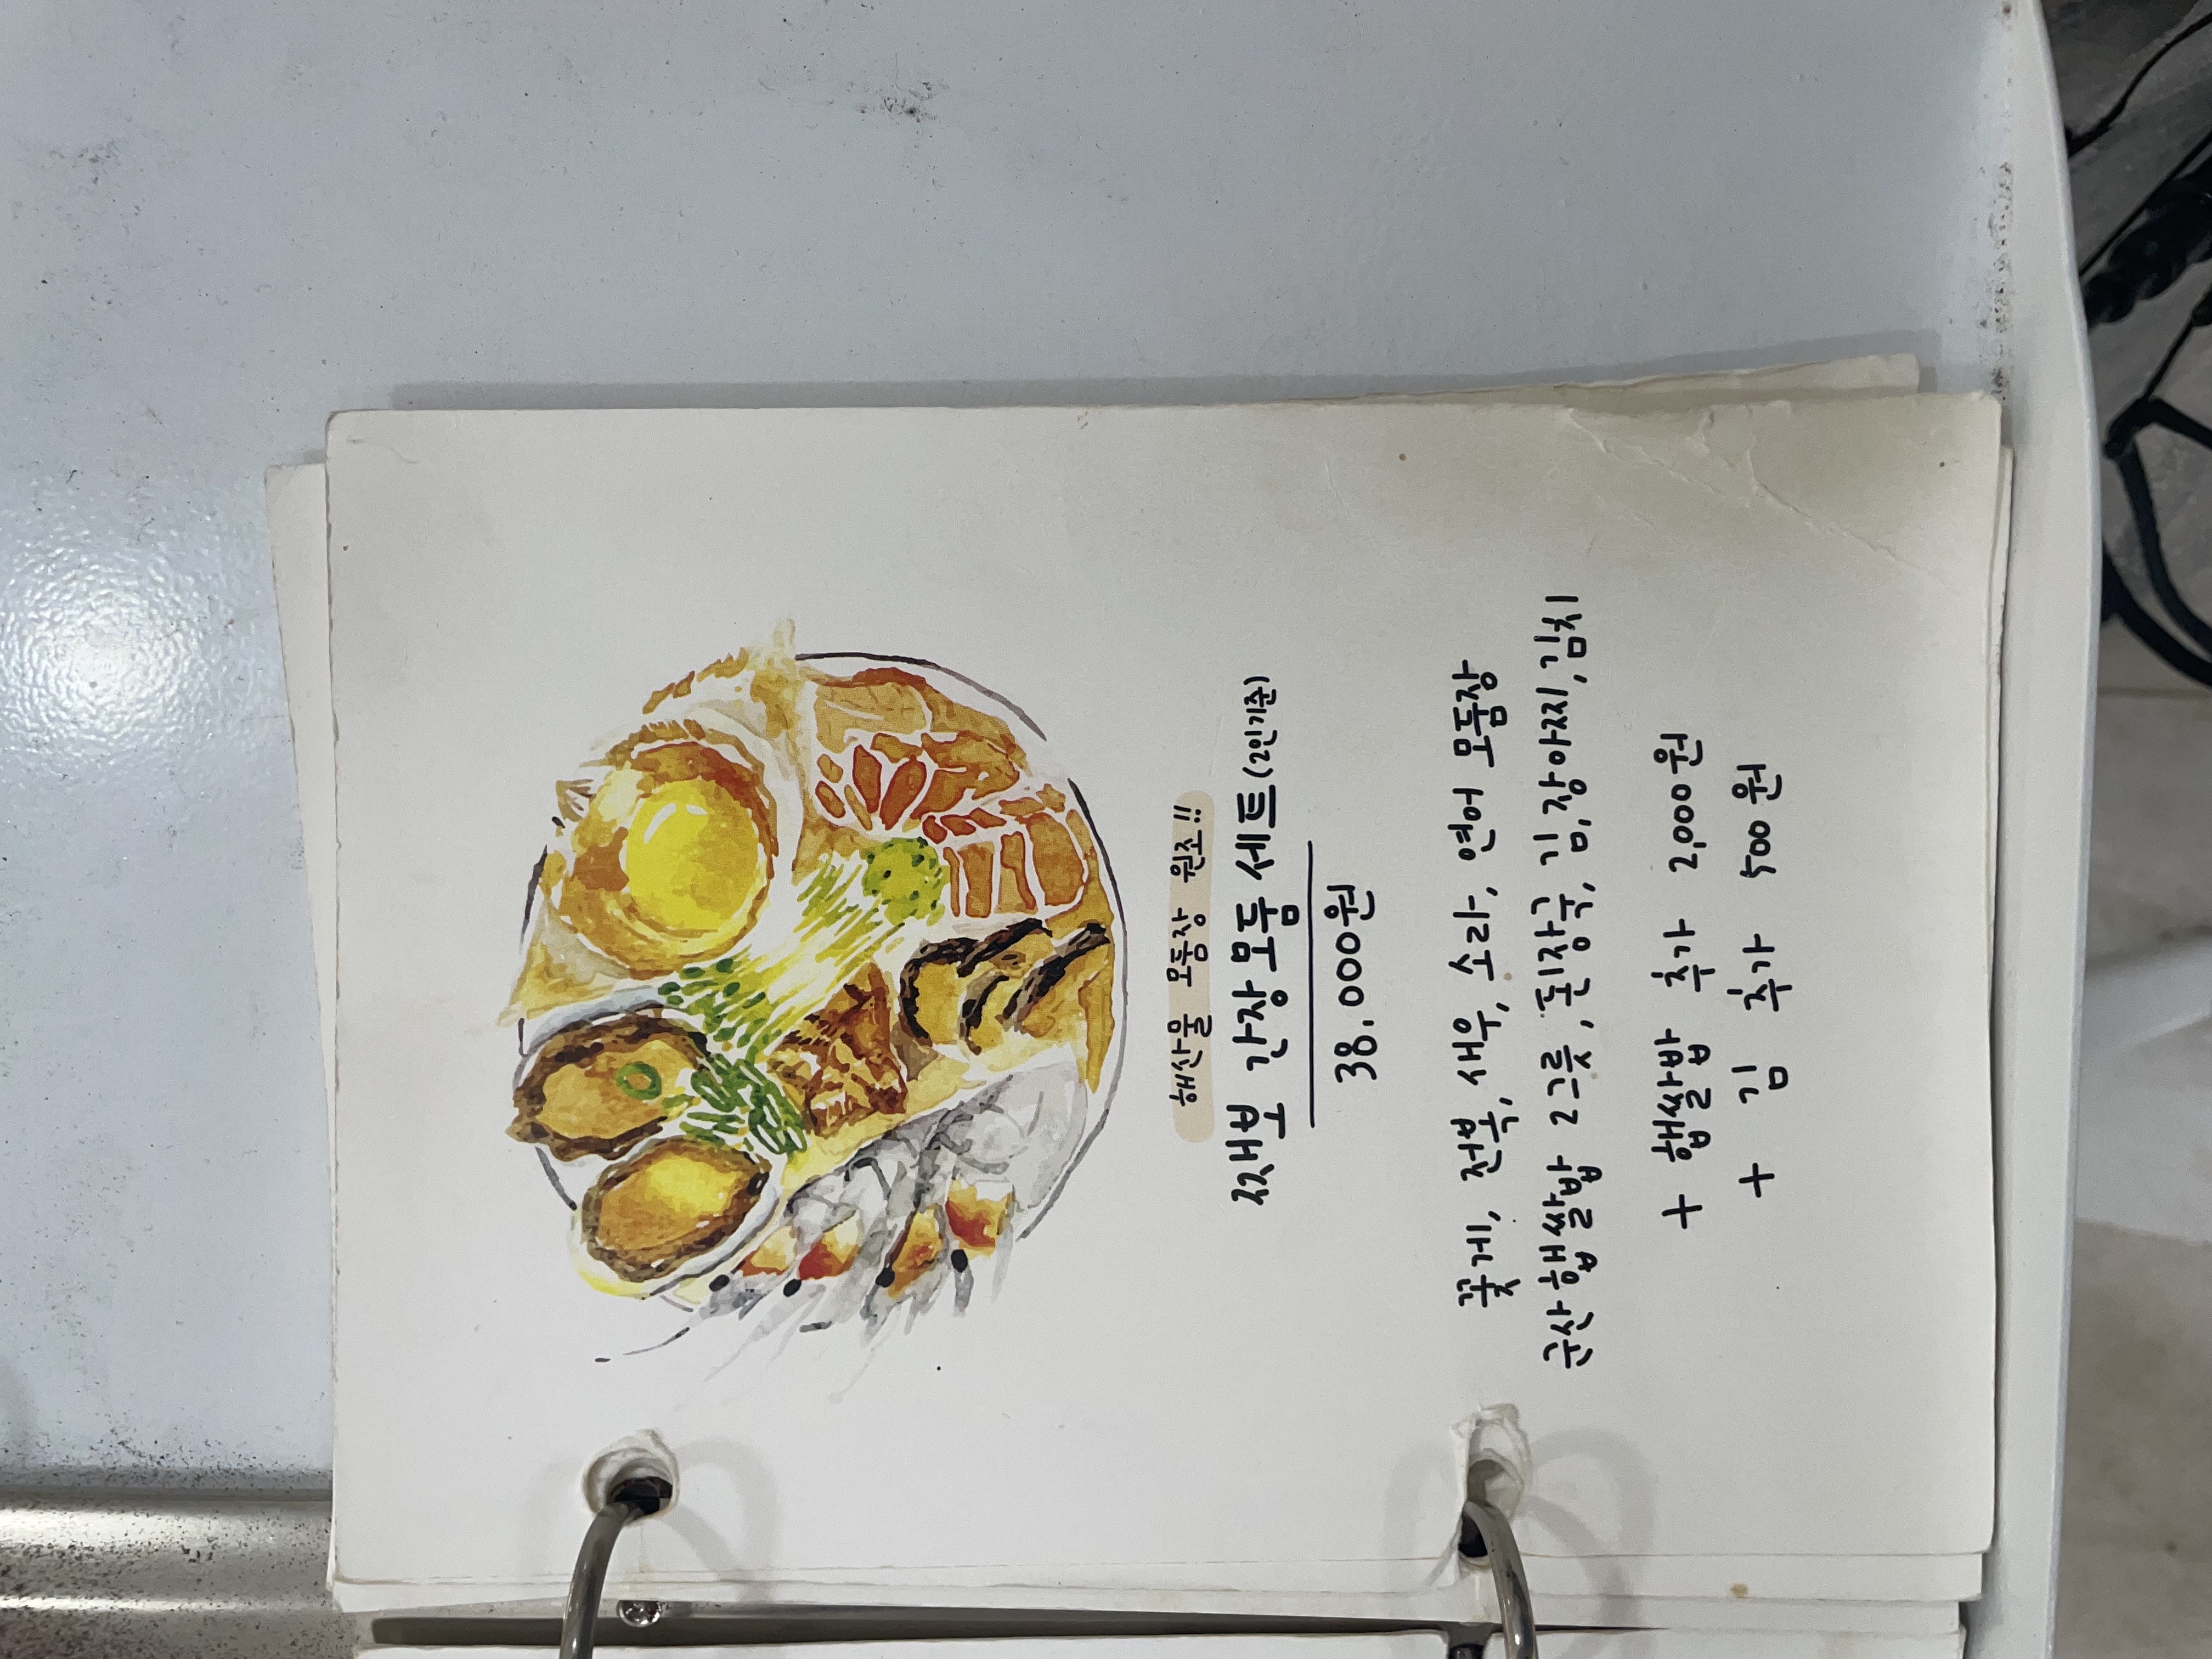 해산물 모둠장 원조!!
째보 간장모듬 세트 (2인기준)
38.000원
꽃게, 전복, 새우, 소라, 연어 모듬장
군산햅쌀밥 2그릇, 된장국, 김, 장아찌, 김치
+ 햅쌀밥 추가 2,000원
+ 김 추가 500원